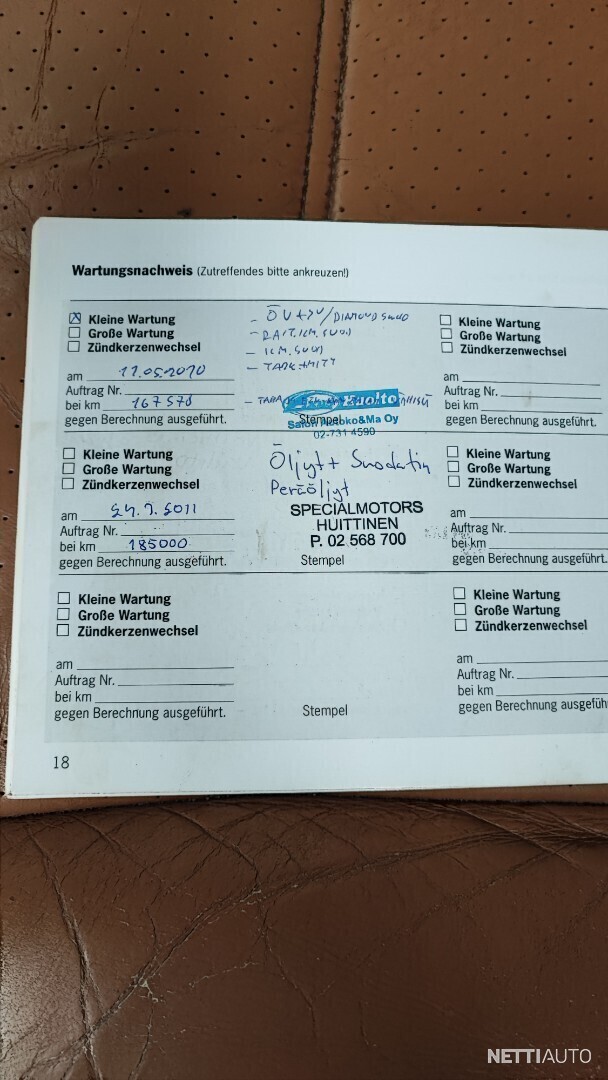 Wartungsnachweis (Zutreffendes bitte ankreuzen!)
Kleine Wartung
Große Wartung
Zündkerzenwechsel
am 11.05.2010
Auftrag Nr.
bei km 167570
gegen Berechnung ausgeführt.
- RAIT.ILM.SUOD
- ILM.SUOD
huolto
Salon Autoko&Ma Oy
02-731 4590
Stempel
Kleine Wartung
Große Wartung
Zündkerzenwechsel
am
Auftrag Nr.
bei km
gegen Berechnung ausgeführt.
Kleine Wartung
Große Wartung
Zündkerzenwechsel
am 2011
Auftrag Nr.
bei km 185000
gegen Berechnung ausgeführt.
Öljyt + Suodatin
Peräöljyt
SPECIALMOTORS
HUITTINEN
P. 02 568 700
Stempel
Kleine Wartung
Große Wartung
Zündkerzenwechsel
am
Auftrag Nr.
bei km
gegen Berechnung ausgeführt.
Kleine Wartung
Große Wartung
Zündkerzenwechsel
am
Auftrag Nr.
bei km
gegen Berechnung ausgeführt.
Stempel
Kleine Wartung
Große Wartung
Zündkerzenwechsel
am
Auftrag Nr.
bei km
gegen Berechnung ausgefüh
18
NETTIAUTO